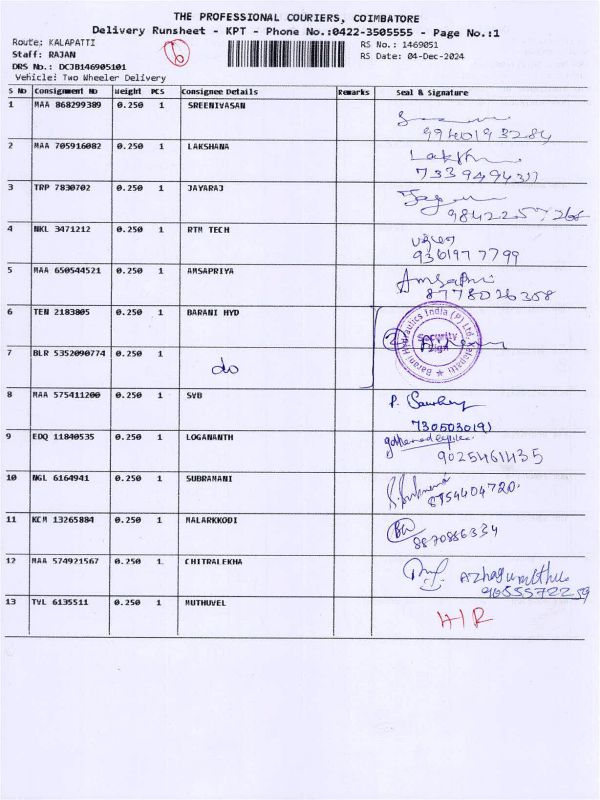 THE PROFESSIONAL COURIERS, COIMBATORE
Delivery Runsheet - KPT - Phone No.:0422-3505555 - Page No.:1
Route: KALAPATTI
RS No.: 1469051
Staff: RAJAN
RS Date: 04-Dec-2024
DRS No.: DCJB146905101
Vehicle: Two Wheeler Delivery
S No Consignment No Weight PCS Consignee Details Remarks Seal & Signature
1 MAA 868299389 0.250 1 SREENIVASAN
9940193284
2 MAA 705916082 0.250 1 LAKSHANA
3 TRP 7830702 0.250 1 JAYARAJ
4 NKL 3471212 0.250 1 RTM TECH
5 MAA 650544521 0.250 1 AMSAPRIYA Amsapri
8778026358
6 TEN 2183805 0.250 1 BARANI HYD
Barani Hydraulics India (P) Ltd. Kalapatti
Security
Sign
7 BLR 5352090774 0.250 1 do
8 MAA 575411200 0.250 1 SYB
7305030191
9 EDQ 11840535 0.250 1 LOGANANTH
9025461435
10 NGL 6164941 0.250 1 SUBRAMANI
8754404720
11 KCM 13265884 0.250 1 MALARKKODI
8870886334
12 MAA 574921567 0.250 1 CHITRALEKHA Azhagumuthu
9655572259
13 TVL 6135511 0.250 1 MUTHUVEL H/R